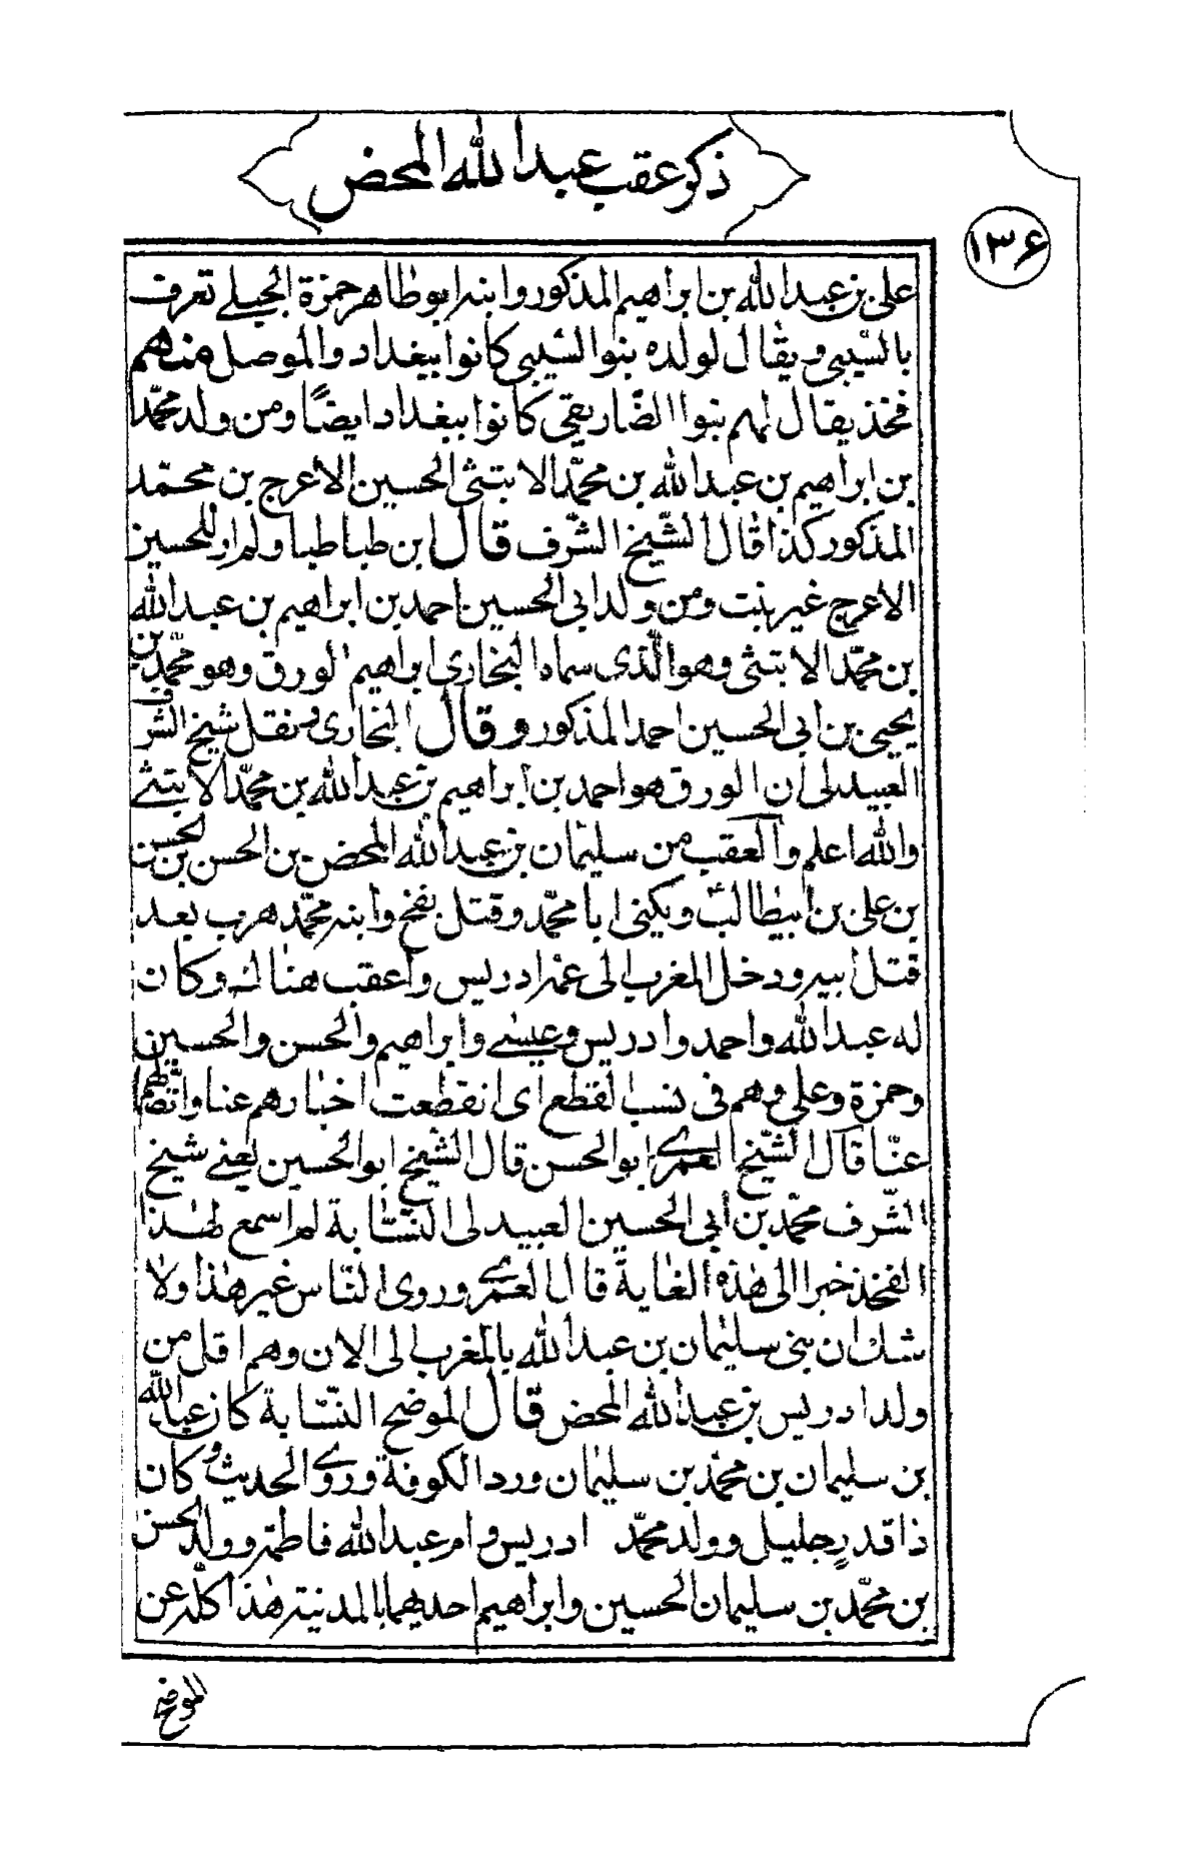 ذكر عقب عبد الله المحض
١٣۶
على بن عبد الله بن ابراهيم المذكور وابنه ابوطاهر حمزة الجبلے تعرف
بالسيبى ويقال لولده بنوا السيبى كانوا ببغداد والموصل منهم
فخذ يقال لهم بنوا الضاريقى كانوا ببغداد ايضًا ومن ولد محمّد
بن ابراهيم بن عبد الله بن محمّد الابتثى الحسين الاعرج بن محمّد
المذكور كذا قال الشّيخ الشّرف قال ابن طباطبا ولم ار للحسين
الاعرج غير بنت ومن ولد ابى الحسين احمد بن ابراهيم بن عبد الله
بن محمّد الابتثى وهو الّذى سماه البخارى ابراهيم الورق وهو محمّد بن
يحيى بن ابى الحسين احمد المذكور وقال البخارى ونقل شيخ الشرف
العبيدلى ان الورق هو احمد بن ابراهيم بن عبد الله بن محمّد الابتثے
والله اعلم والعقب من سليمان بن عبد الله المحض بن الحسن بن الحسن
بن على بن ابيطالب ويكنى ابا محمّد وقتل بفخ وابنه محمّد هرب بعد
قتل ابيه ودخل المغرب الى عمه ادريس واعقب هناك وكان
له عبد الله واحمد وادريس وعيسے وابراهيم والحسن والحسين
وحمزة وعلى وهم فى نسب القطع اى انقطعت اخبارهم عنا وانّصالهم
عنّا قال الشّيخ العمرے ابو الحسن قال الشّيخ ابو الحسين يعنے شيخ
الشّرف محمّد بن ابى الحسين العبيدلى النسّابة لم اسمع لهذا
الفخذ خبرا الى هذه الغاية قال العمرے وروى النّاس غير هذا ولا
شك ان بنى سليمان بن عبد الله بالمغرب الى الان وهم اقل من
ولد ادريس بن عبد الله المحض قال الموضح النسّابة كان عبد الله
بن سليمان بن محمّد بن سليمان ورد الكوفة وروے الحديث وكان
ذا قدرٍ جليل وولد محمّد ادريس وام عبد الله فاطمه وولد الحسن
بن محمّد بن سليمان الحسين وابراهيم احديهما بالمدينة هذا كلّه عن
الموضح